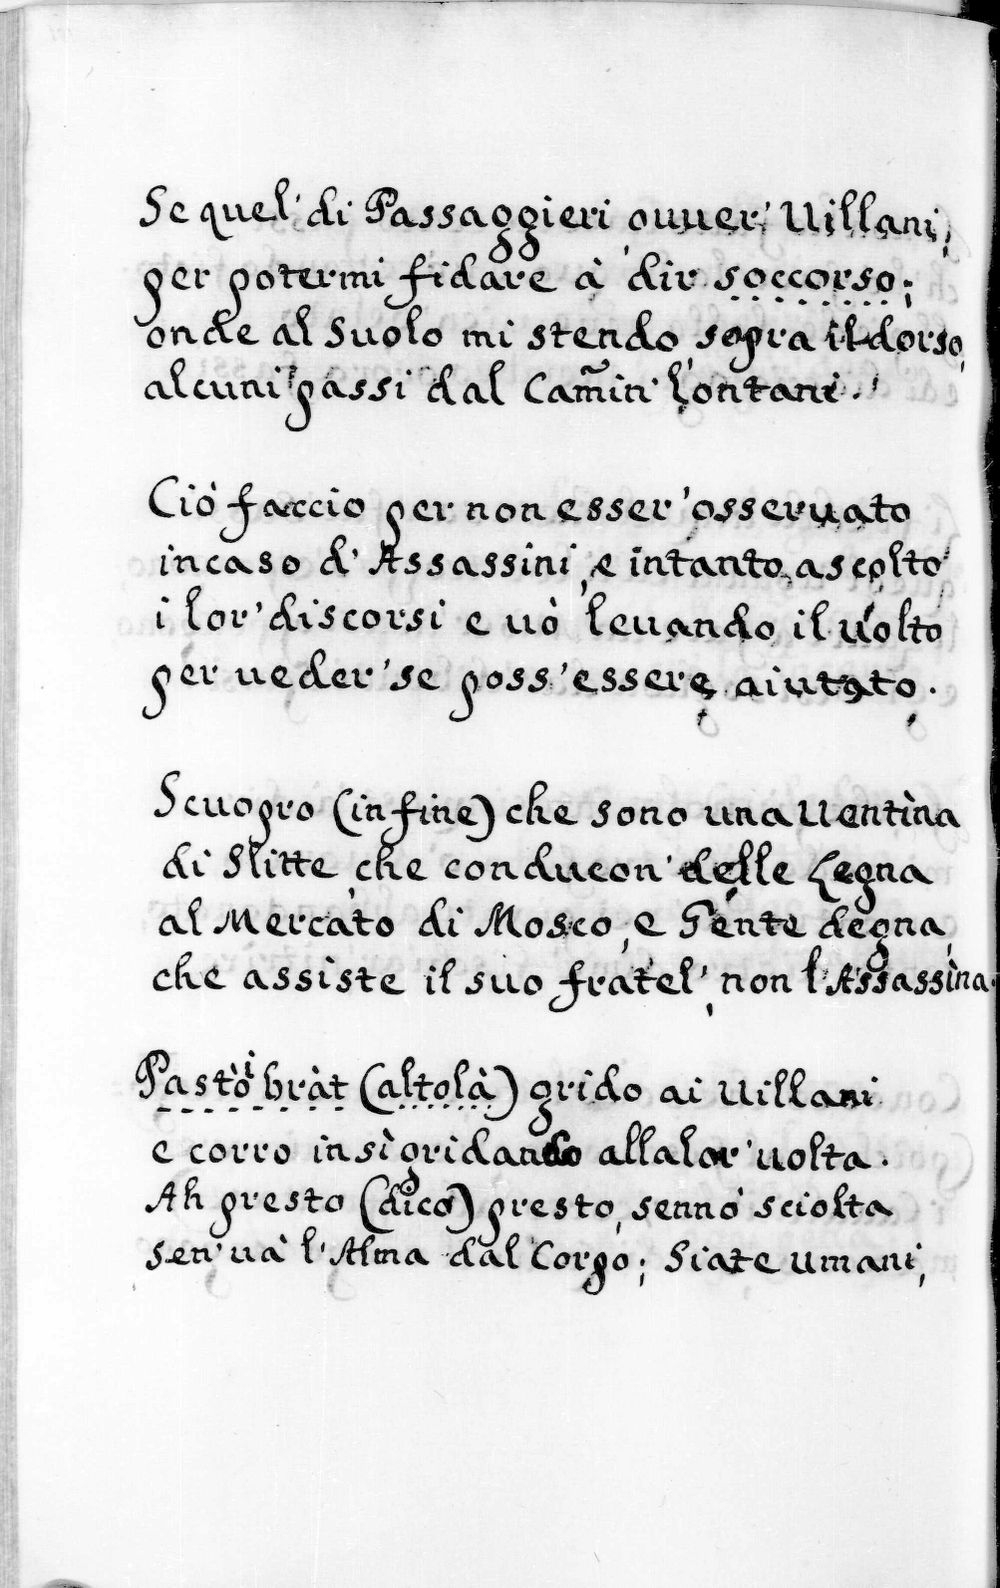 Se quel' di Passaggieri ouuer' Uillani,
per potermi fidare à dir soccorso;
onde al Suolo mi stendo sopra il dorso,
alcuni passi dal Cam̃in' Lontani.
Ciò faccio per non esser' osseruato
incaso d' Assassini, e intanto ascolto
i lor' discorsi e uò leuando il uolto
per ueder' se poss' essere aiutato.
Scuopro (infine) che sono una Uentìna
di Slitte, che conducon' delle Legna
al Mercato di Mosco, e Gente degna,
che assiste il suo fratel', non l'Assassìna.
Pastòi bràt (altolà) grido ai Uillani
e corro insì gridando allalor' uolta.
Ah presto (dico) presto, sennò sciolta
sen' uà l'Alma dal Corpo; Siate umani,